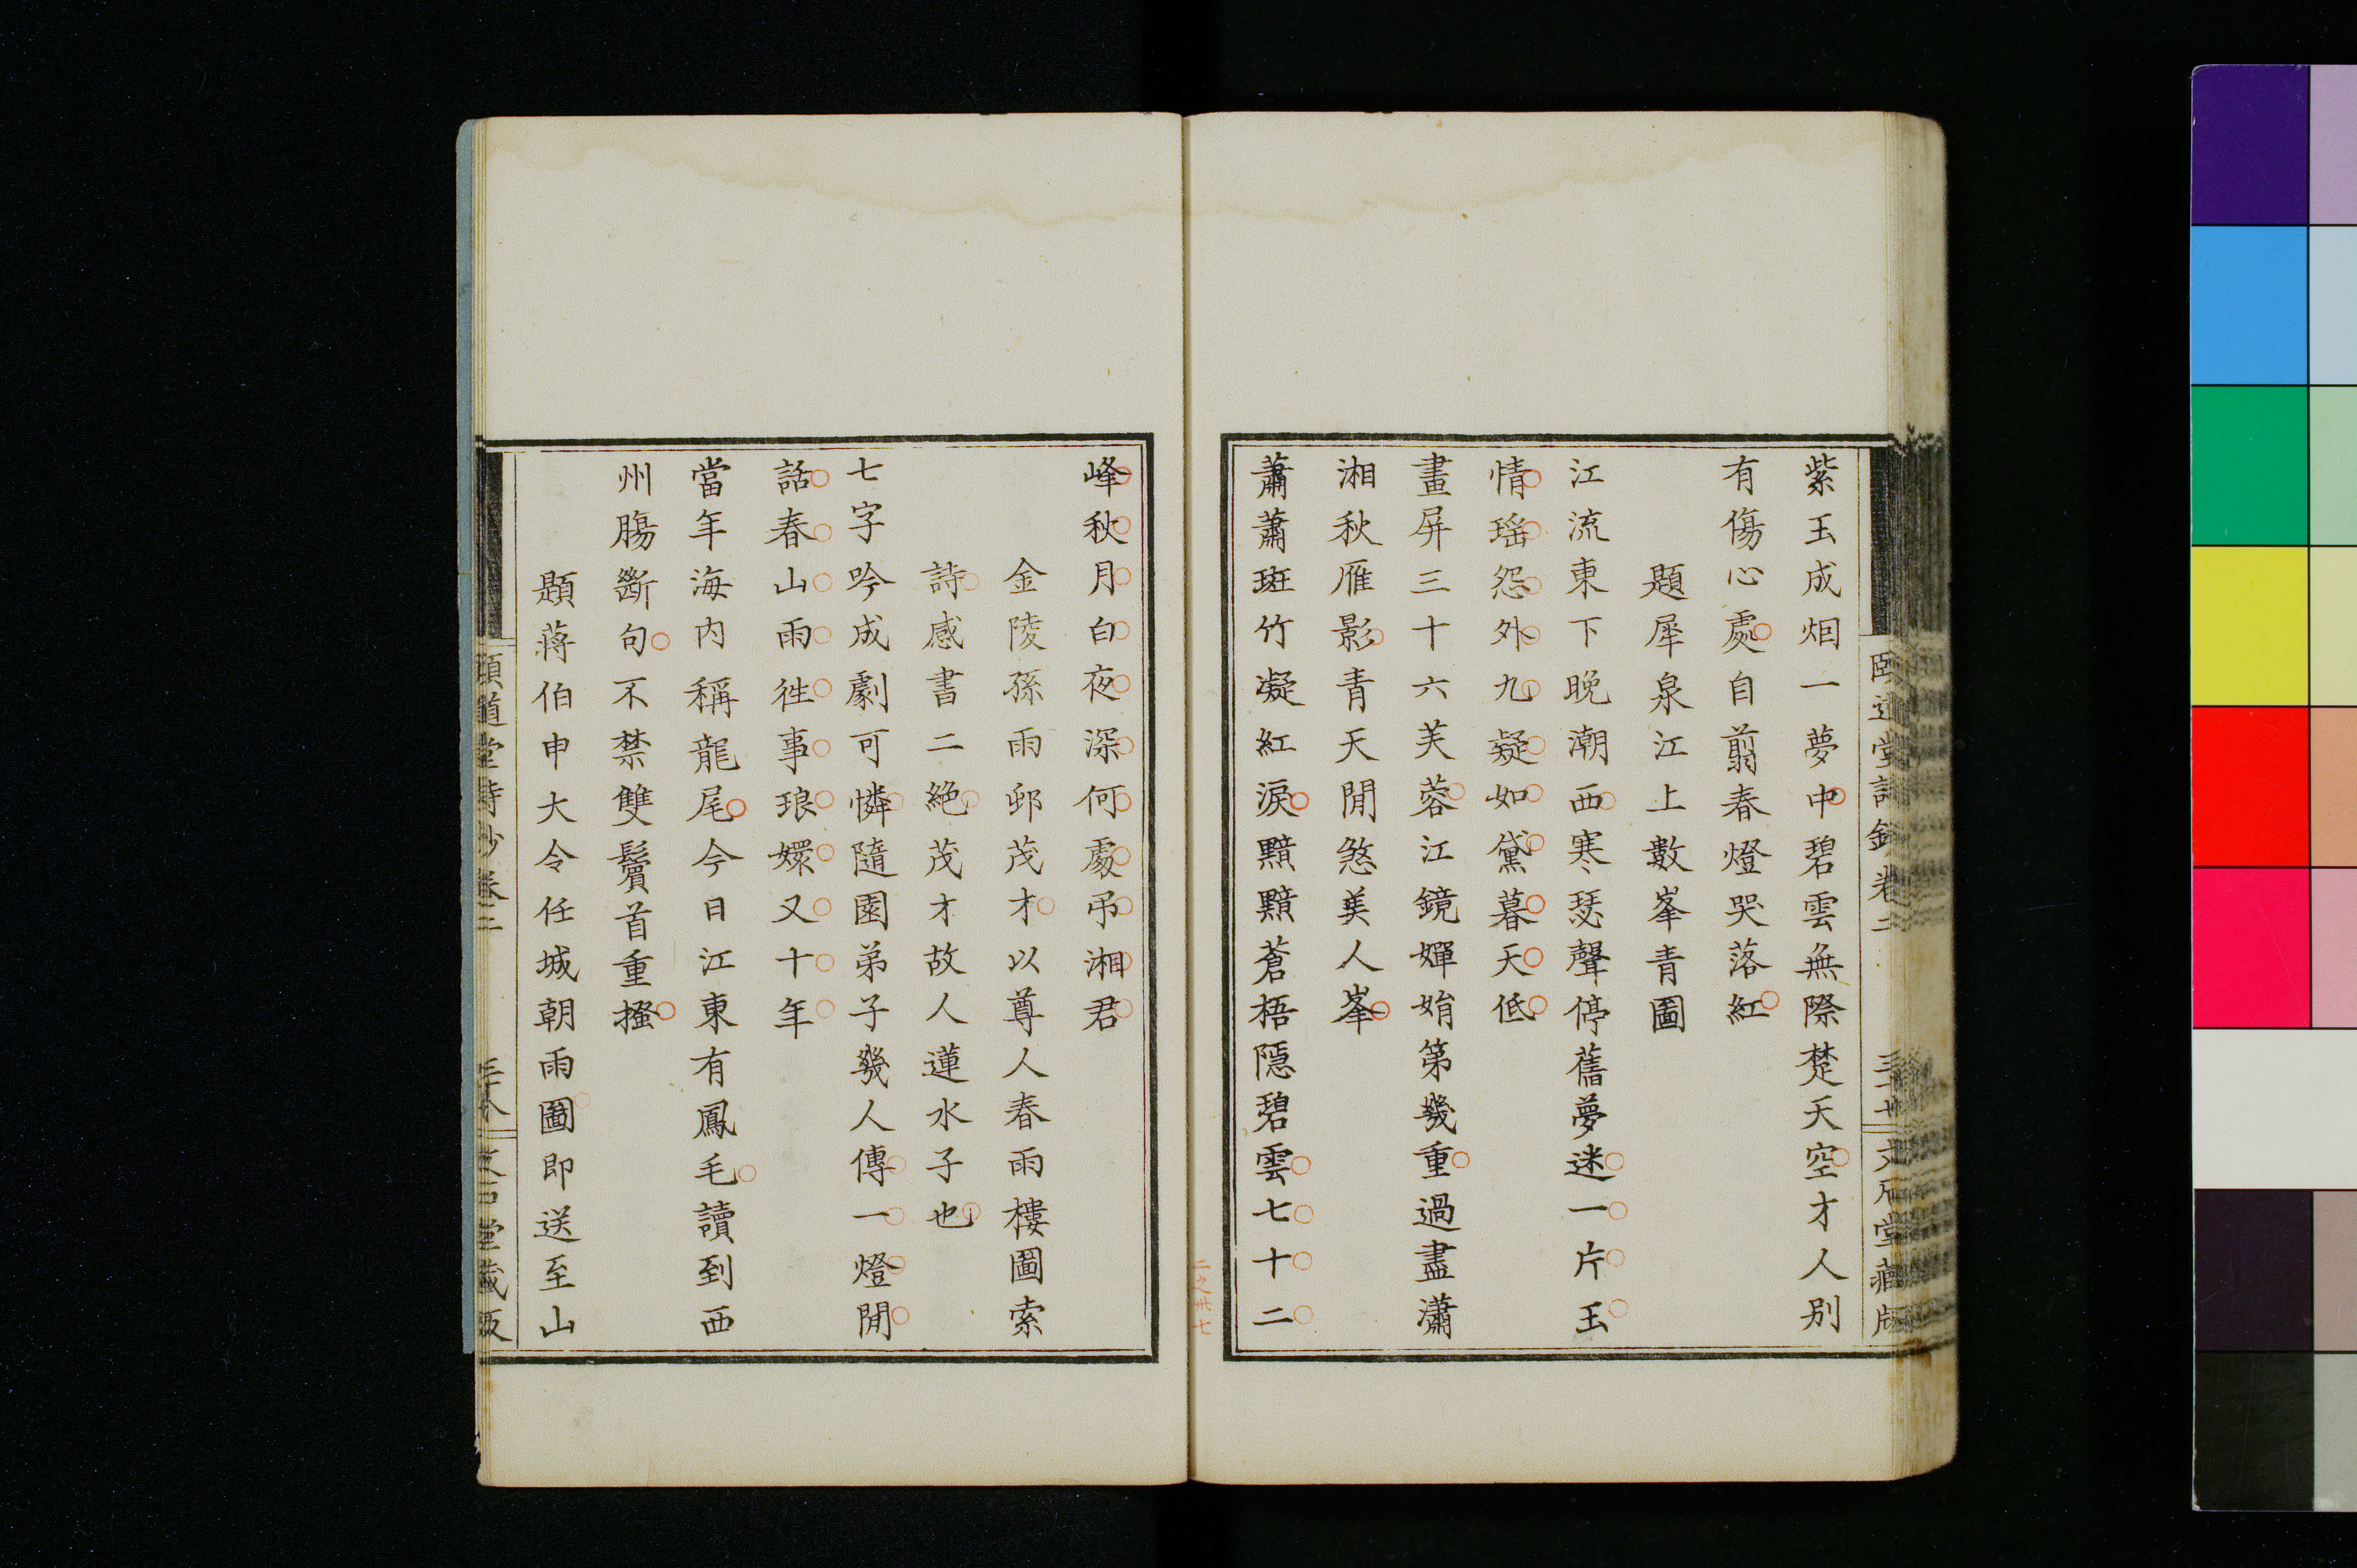 紫玉成烟一夢中碧雲無際楚天空才人别
有傷心處自翦春燈哭落紅
題犀泉江上數峯青圖
江流東下晚潮西寒瑟聲停舊夢迷一片玉
情瑶怨外九疑如黛暮天低
畫屏三十六芙蓉江鏡嬋娟第幾重過盡瀟
湘秋雁影青天閒煞美人峯
蕭蕭斑竹凝紅淚黯黯蒼梧隱碧雲七十二
二之卅七
峰秋月白夜深何處吊湘君
金陵孫雨邨茂才以尊人春雨樓圖索
詩感書二絕茂才故人蓮水子也
七字吟成劇可憐隨園弟子幾人傳一燈閒
話春山雨徃事琅嬛又十年
當年海内稱龍尾今日江東有鳳毛讀到西
州腸斷句不禁雙鬢首重搔
題蔣伯申大令任城朝雨圖即送至山
頤道堂詩鈔卷二